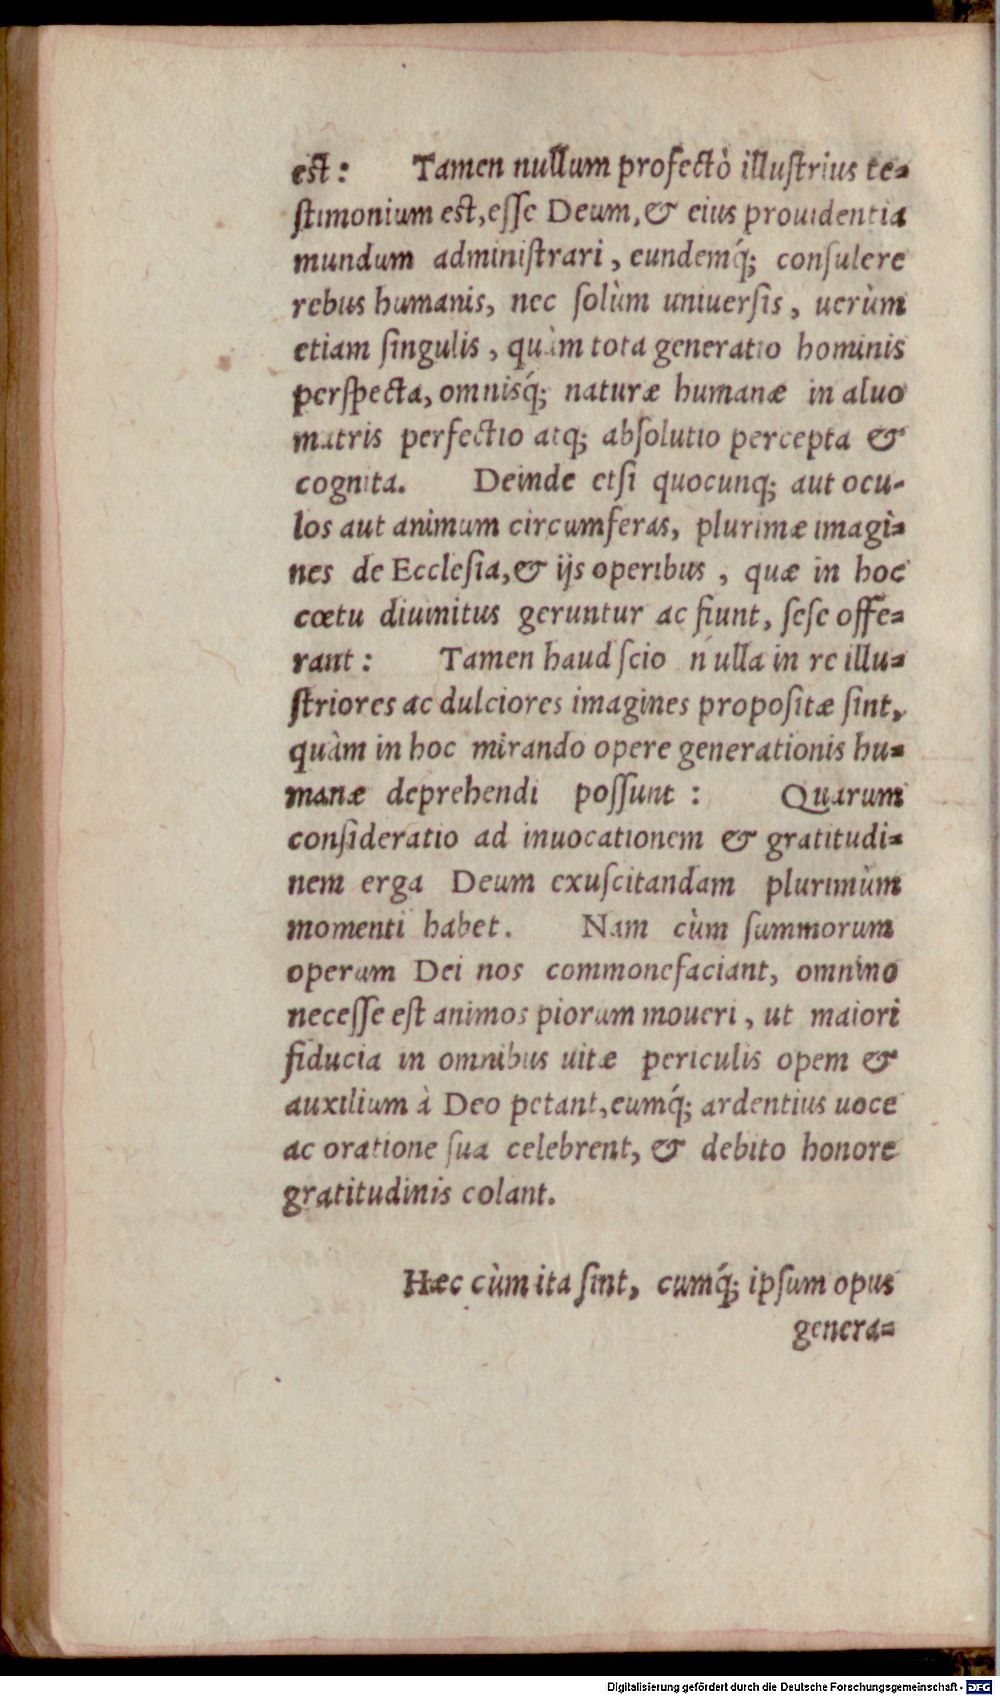 est: Tamen nullum profectò illuſtrius te-
ſtimonium est, eſſe Deum, & eius prouidentia
mundum adminiſtrari, eundemq́; conſulere
rebus humanis, nec ſolùm uniuerſis, uerùm
etiam ſingulis, quàm tota generatio hominis
perſpecta, omnisq́; naturæ humanæ in aluo
matris perfectio atq; abſolutio percepta &
cognita. Deinde etſi quocunq; aut ocu-
los aut animum circumferas, plurimæ imagi-
nes de Eccleſia, & ijs operibus, quæ in hoc
cœtu diuinitus geruntur ac fiunt, ſeſe offe-
rant: Tamen haud ſcio nulla in re illu-
ſtriores ac dulciores imagines propoſitæ ſint,
quàm in hoc mirando opere generationis hu-
manæ deprehendi poſſunt: Quarum
conſideratio ad inuocationem & gratitudi-
nem erga Deum exuſcitandam plurimùm
momenti habet. Nam cùm ſummorum
operum Dei nos commonefaciant, omnino
neceſſe eſt animos piorum moueri, ut maiori
fiducia in omnibus uitæ periculis opem &
auxilium à Deo petant, eumq́; ardentius uoce
ac oratione ſua celebrent, & debito honore
gratitudinis colant.
Hæc cùm ita ſint, cumq́; ipſum opus
genera-
Digitalisierung gefördert durch die Deutsche Forschungsgemeinschaft - DFG